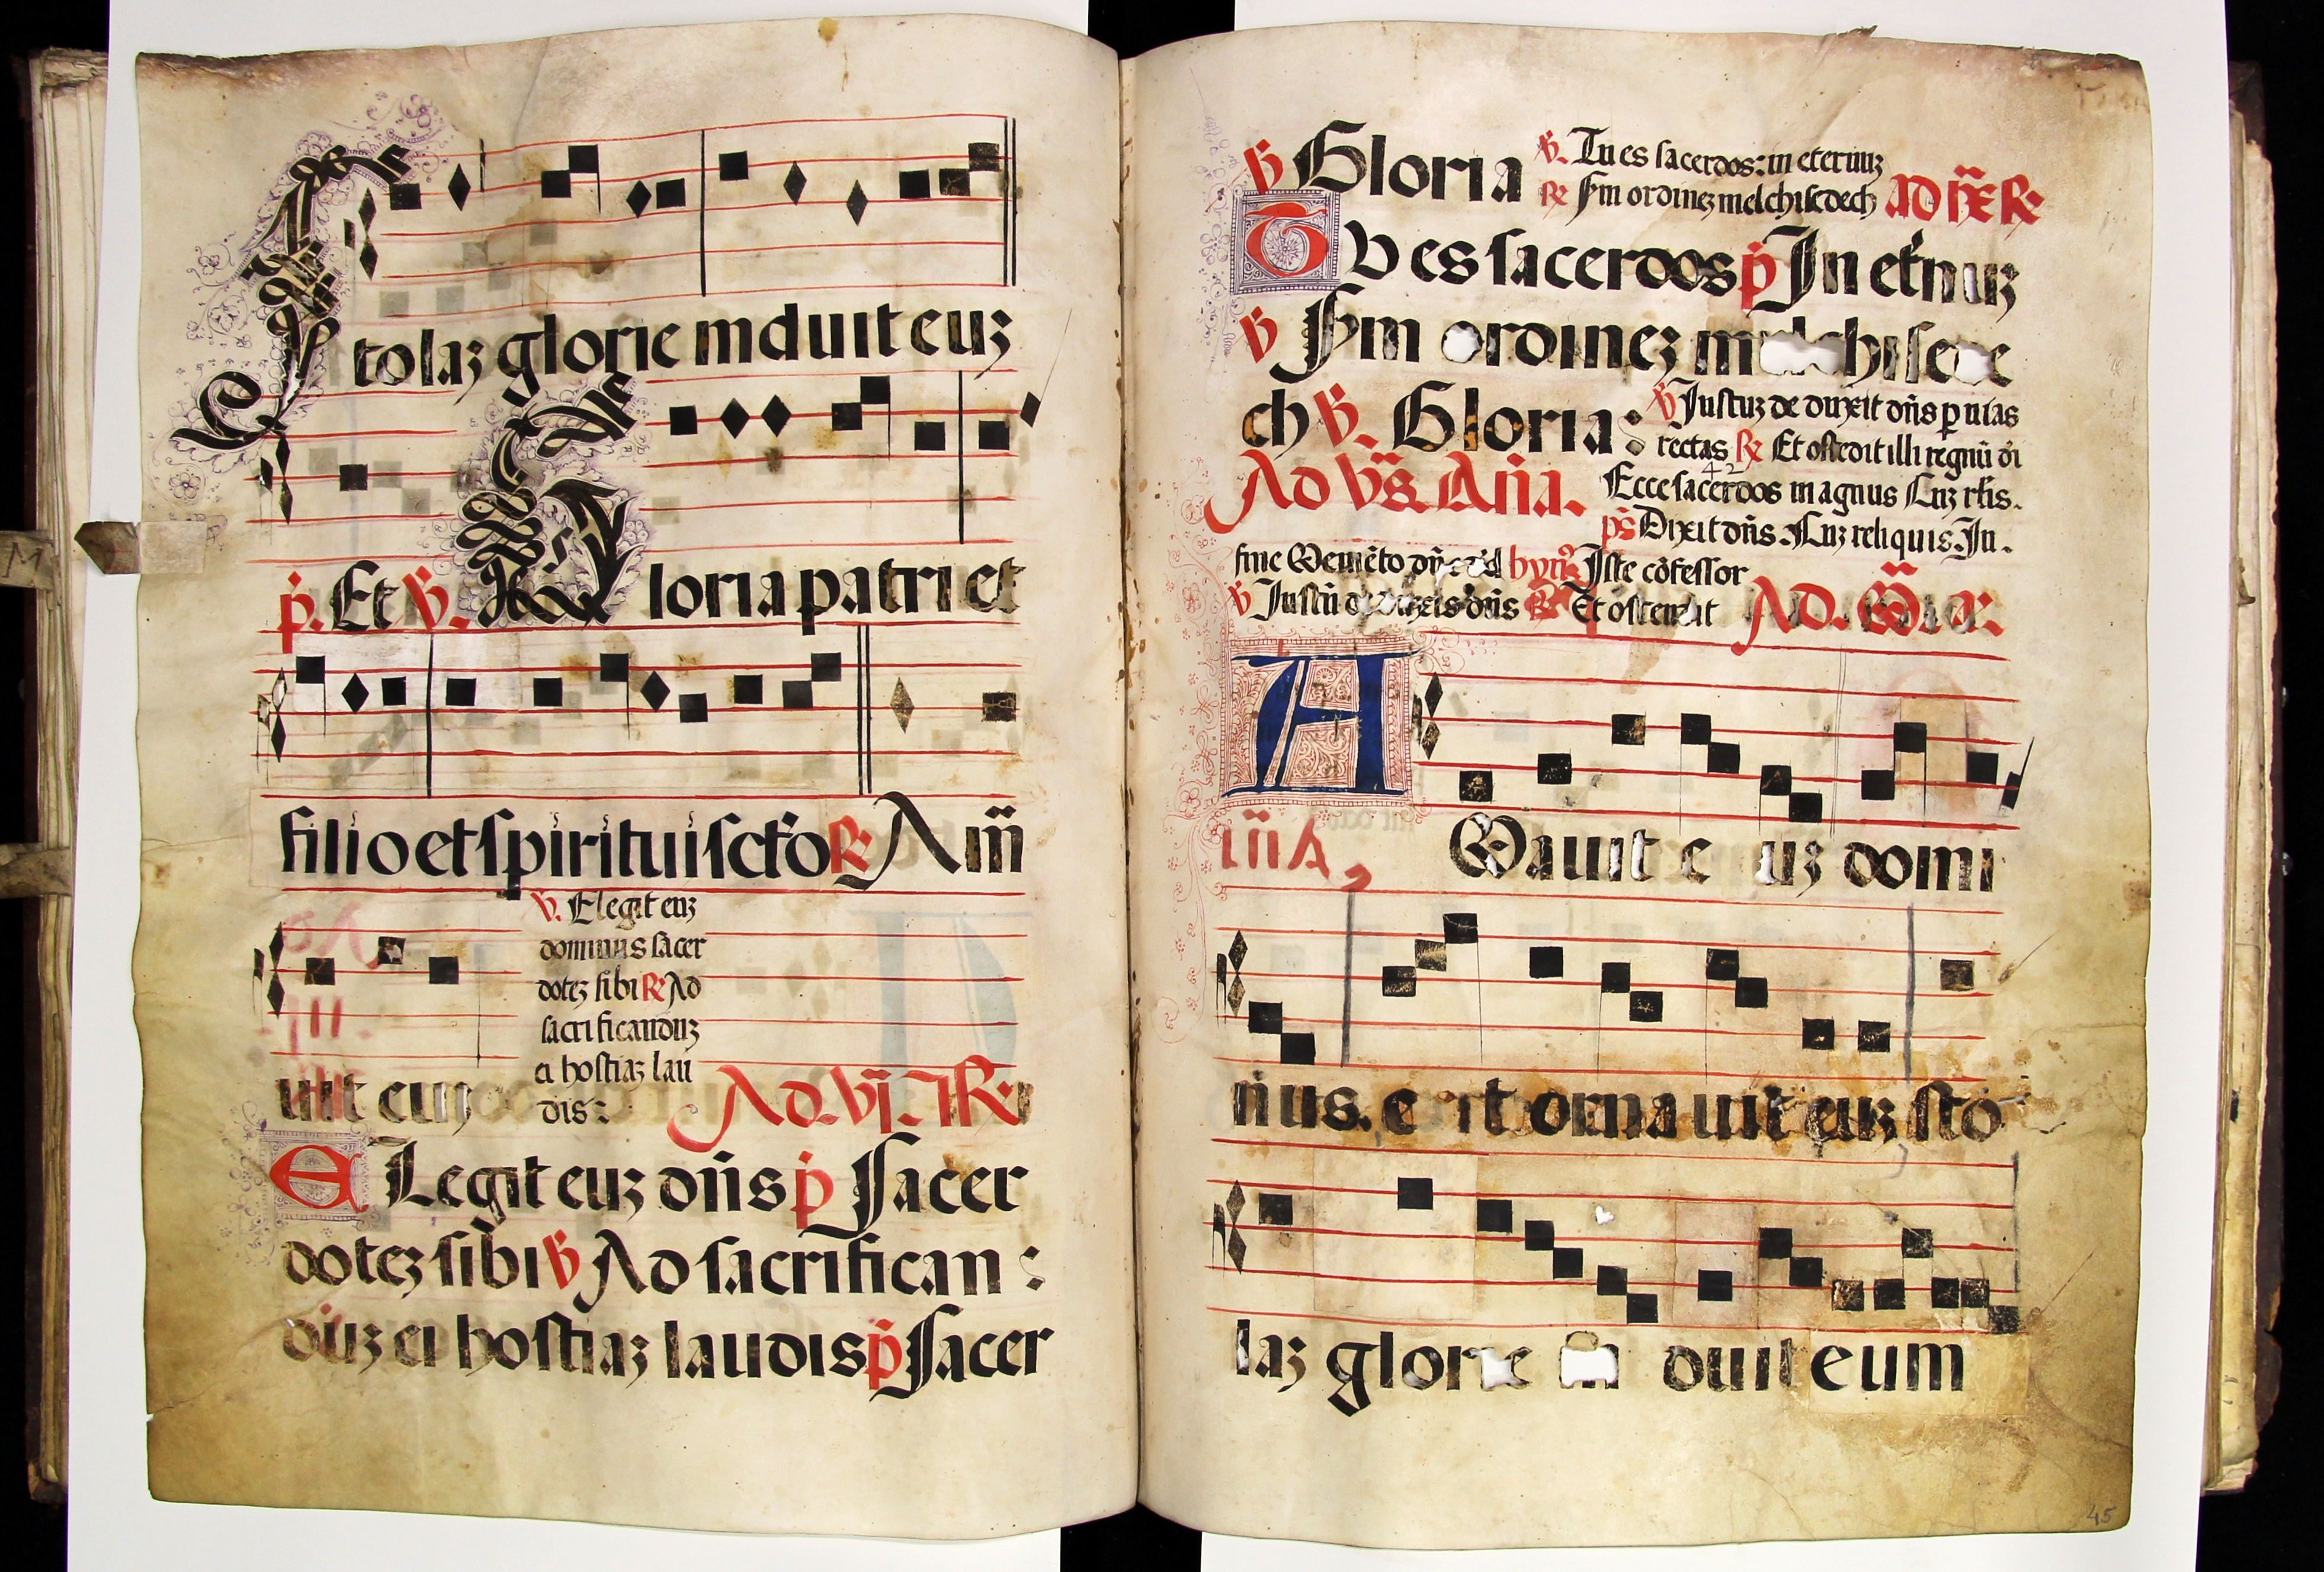 Stolaz glorie induit euz
p. Et V. Gloria patri et
filio et spiritui scto R Am
V. Elegit euz
dominus sacer
dotez sibi R Ad
sacrificanduz
ei hostiaz lau
dis:
uit euz
Ad. VI. R
ELegit euz dns p Sacer
dotez sibi V Ad sacrifican:
duz ei hostiaz laudis p Sacer
V Gloria V. Tu es sacerdos: in eternuz
R Sm ordinez melchisedech Ad IX R
TV es sacerdos p In etnuz
V Sm ordinez melchisede
ch V. Gloria: V Justuz deduxit dns p uias
rectas R Et ostedit illi regnu di
42
Ad Vs. Ana. Ecce sacerdos magnus Cuz rlis.
ps Dixit dns. Cuz reliquis. In.
fine Memeto dne hyn Iste cofessor
V Justu dns R Et ostendit Ad. M
A
Mauit euz domi
nus. et ornauit euz sto
laz glorie induit eum
45
M